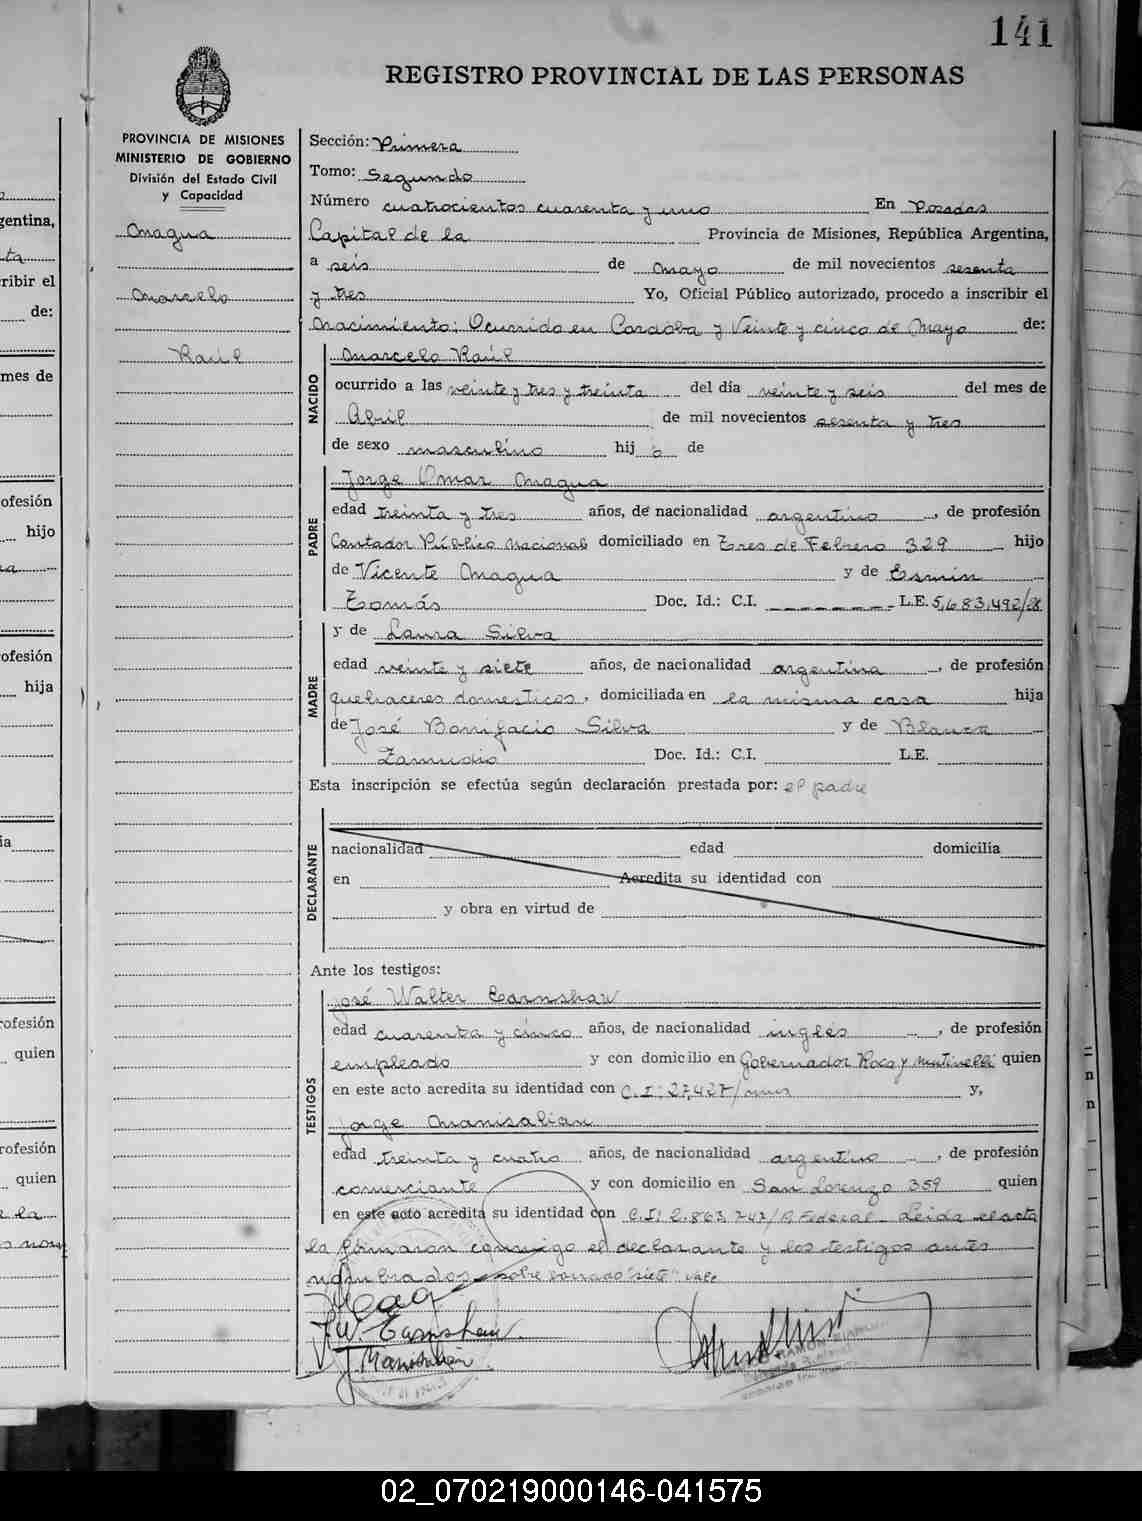 141
REGISTRO PROVINCIAL DE LAS PERSONAS
PROVINCIA DE MISIONES
MINISTERIO DE GOBIERNO
División del Estado Civil
y Capacidad
Magua
Marcelo
Raúl
Sección: Primera
Tomo: Segundo
Número cuatrocientos cuarenta y uno En Posadas
Capital de la Provincia de Misiones, República Argentina,
a seis de mayo de mil novecientos sesenta
y tres Yo, Oficial Público autorizado, procedo a inscribir el
Nacimiento: Ocurrido en Cordoba y Veinte y cinco de Mayo de:
NACIDO
Marcelo Raúl
ocurrido a las veinte y tres y treinta del día veinte y seis del mes de
Abril de mil novecientos sesenta y tres
de sexo masculino hij o de
PADRE
Jorge Omar Magua
edad treinta y tres años, de nacionalidad argentino, de profesión
Contador Público Nacional domiciliado en Tres de Febrero 329 hijo
de Vicente Magua y de Esmin
Tomás Doc. Id.: C.I. L.E. 5,683,492/
MADRE
y de Laura Silva
edad veinte y siete años, de nacionalidad argentina, de profesión
quehaceres domesticos, domiciliada en la misma casa hija
de José Bonifacio Silva y de Blanca
Zamudio Doc. Id.: C.I. L.E.
Esta inscripción se efectúa según declaración prestada por: el padre
DECLARANTE
nacionalidad edad domicilia
en Acredita su identidad con
y obra en virtud de
Ante los testigos:
TESTIGOS
José Walter Earnshaw
edad cuarenta y cinco años, de nacionalidad inglés, de profesión
empleado y con domicilio en Gobernador Roca y Martinelli quien
en este acto acredita su identidad con C.I: 27,427/ y,
Jorge Manisalian
edad treinta y cuatro años, de nacionalidad argentino, de profesión
comerciante y con domicilio en San Lorenzo 359 quien
en este acto acredita su identidad con C.I: 2.863,747/P. Federal. Leída el acta
la firmaron conmigo el declarante y los testigos antes
nombrados sobre borrado "siete" vale
J.W. Earnshaw
J. Manisalian
gentina,
ribir el
de:
mes de
ofesión
hijo
ofesión
hija
rofesión
quien
rofesión
quien
02_070219000146-041575